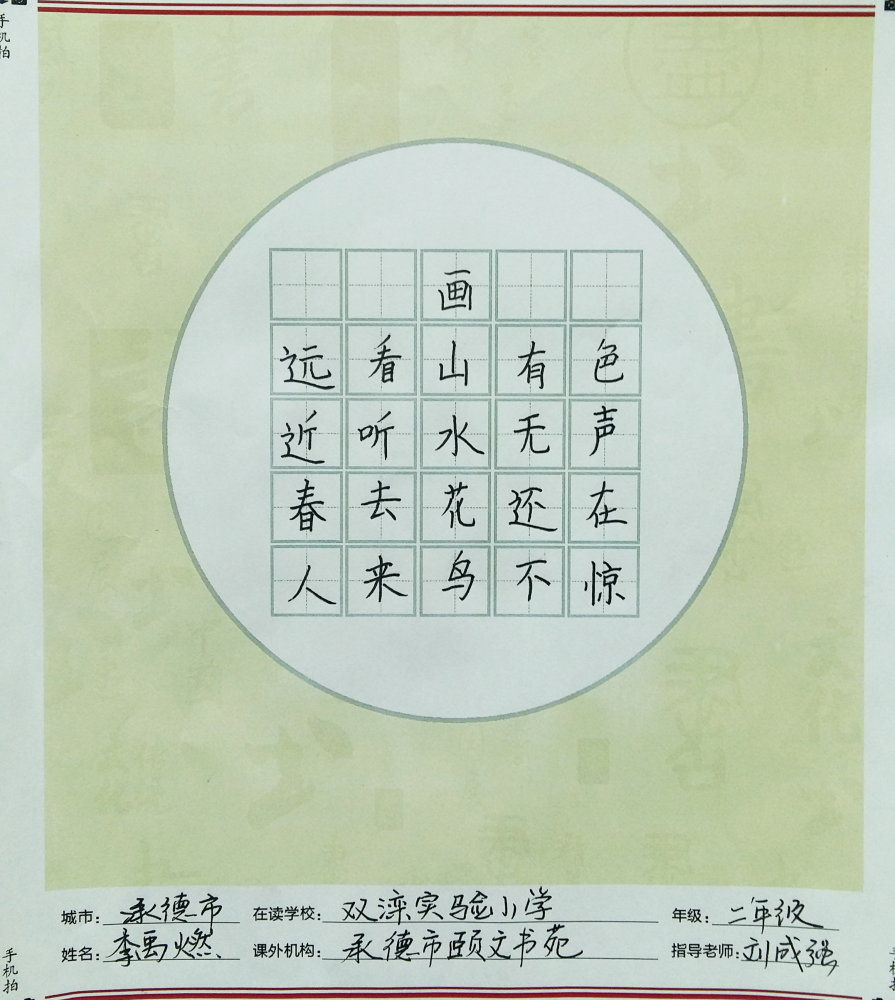 手机拍
画
远看山有色
近听水无声
春去花还在
人来鸟不惊
城市: 承德市 在读学校: 双滦实验小学 年级: 二年级
姓名: 李禹燃 课外机构: 承德市颐文书苑 指导老师: 刘成强
手机拍